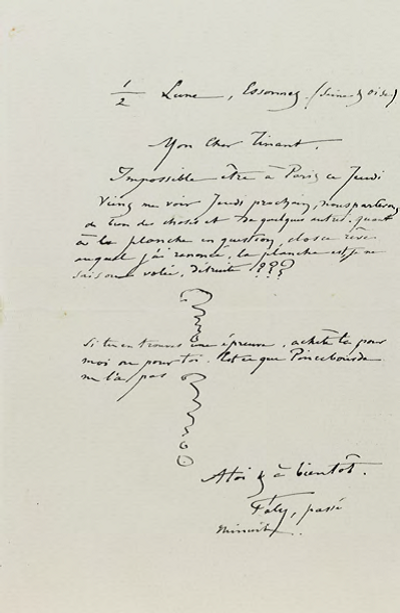 1/2 Lune, Essonnes. (Seine & Oise)
Mon Cher Tinant.
Impossible être à Paris ce Jeudi
Viens me voir Jeudi prochain, nous parlerons
de bon des choses et de quelques autres. quant
à la planche en question, chose rêvée
auquel j'ai renoncé, la planche est je ne
sais où volée, détruite ???
Si tu en trouves une épreuve, achète la pour
moi ou pour toi. Est ce que Pincebourde
ne l'a pas
A toi & à bientôt.
Fély, passé
minuit.